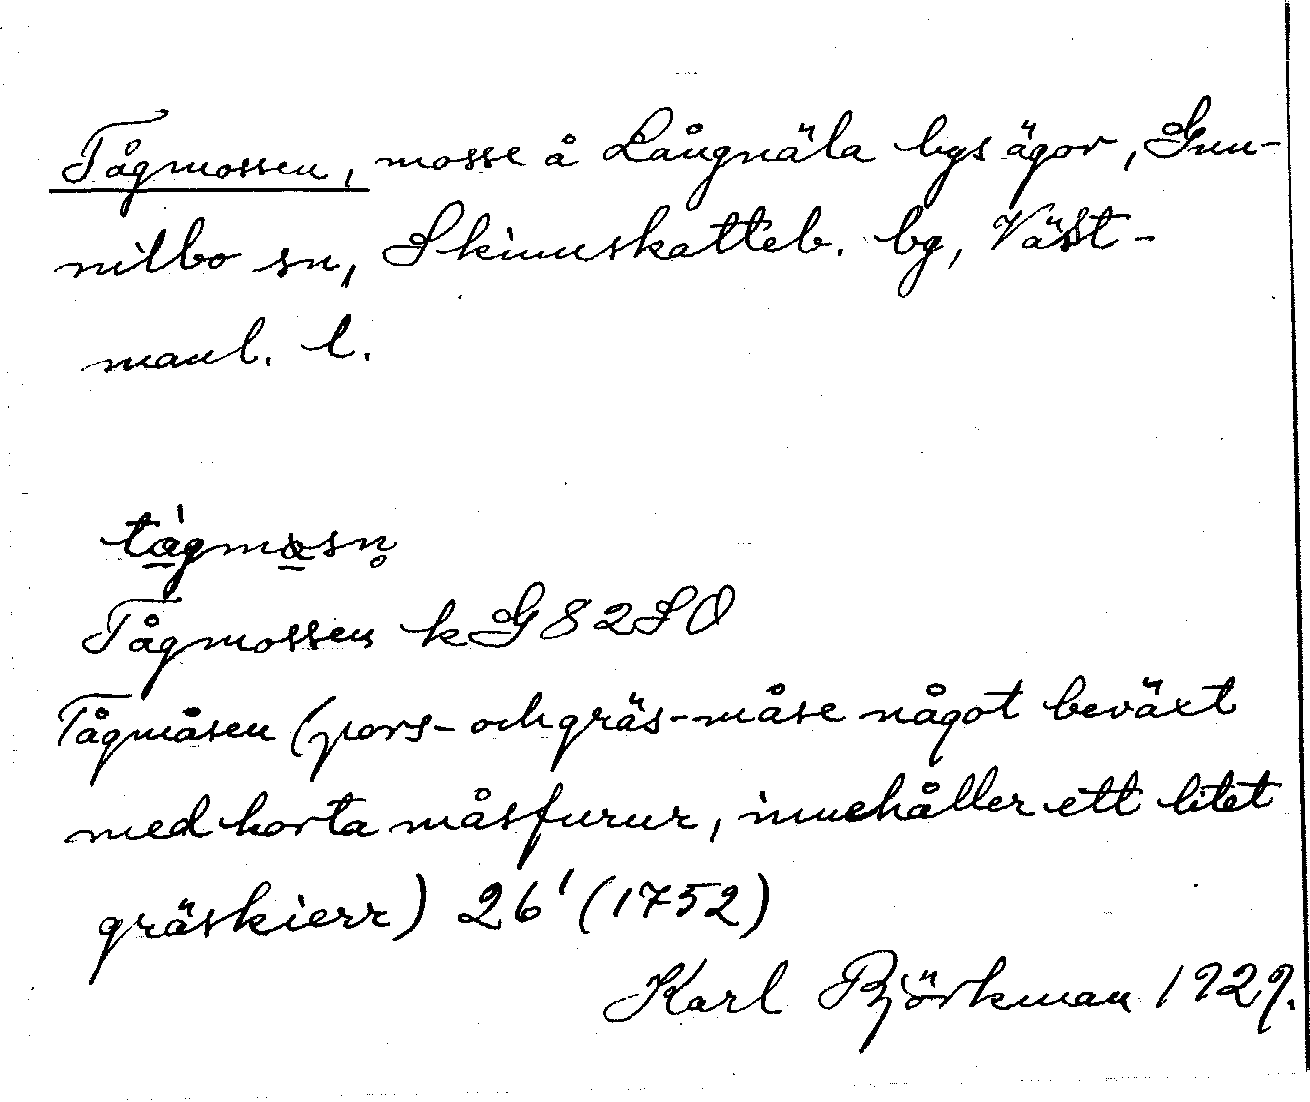 Tågmossen, mosse å Långnäla bys ägor, Gun-
nilbo sn, Skinnskatteb. bg, Väst-
manl. l.
tågmɑsn̥
Tågmossen k G 82 S O
Tågmåsen (pors- och gräs-måse något beväxt
med korta måsfurur, innehåller ett litet
gräskierr) 26' (1752)
Karl Björkman 1929.